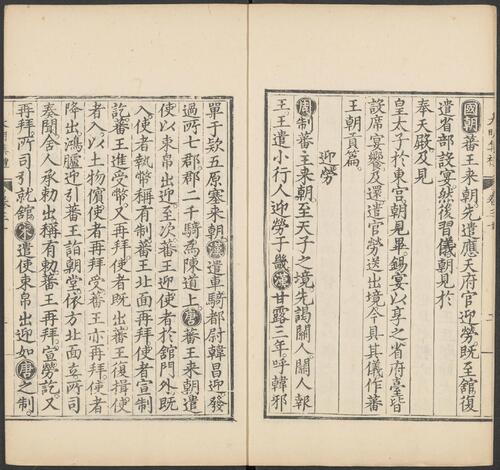 國朝蕃王來朝先遣應天府官迎勞既至館復
遣省部設宴然後習儀朝見於
奉天殿及見
皇太子於東宮朝見畢錫宴以享之省府臺皆
設席宴饗及還遣官勞送出境今具其儀作蕃
王朝貢篇
迎勞
周制蕃主來朝至天子之境先謁關人關人報
王王遣小行人迎勞于畿漢甘露三年呼韓邪
單于欵五原塞來朝漢遣車騎都尉韓昌迎發
過所七郡郡二千騎為陳道上唐蕃王來朝遣
使以束帛出迎至次蕃王迎使者於館門外既
入使者執幣稱有制蕃王北面再拜使者宣制
訖蕃王進受幣又再拜使者既出蕃王復揖使
者入以土物儐使者再拜受蕃王亦再拜使者
降出鴻臚迎引蕃王詣朝堂依方北面立所司
奏聞舍人承勅出稱有勅蕃王再拜宣勞訖又
再拜所司引就館宋遣使束帛出迎如唐之制